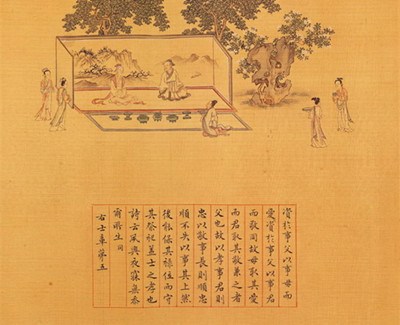 資於事父以事母而
愛資於事父以事君
而敬同故母取其愛
而君取其敬兼之者
父也故以孝事君則
忠以敬事長則順忠
順不失以事其上然
後能保其祿位而守
其祭祀蓋士之孝也
詩云夙興夜寐無忝
爾所生
右士章第五